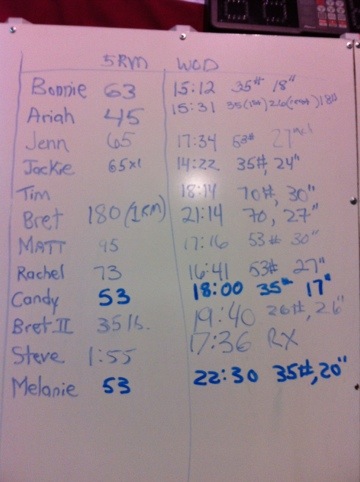 5RM WOD
Bonnie 63 15:12 35# 18"
Ariah 45 15:31 18"
Jenn 65 17:34 53# 27"
Jackie 65x1 14:22 35#, 24"
Tim 18:14 70#, 30"
Bret 180 (1RM) 21:14 70, 27"
Matt 95 17:16 53# 30"
Rachel 73 16:41 53# 27"
Candy 53 18:00 35# 17"
Bret II 35 lb. 19:40 26#, 26"
Steve 1:55 17:36 RX
Melanie 53 22:30 35#, 20"